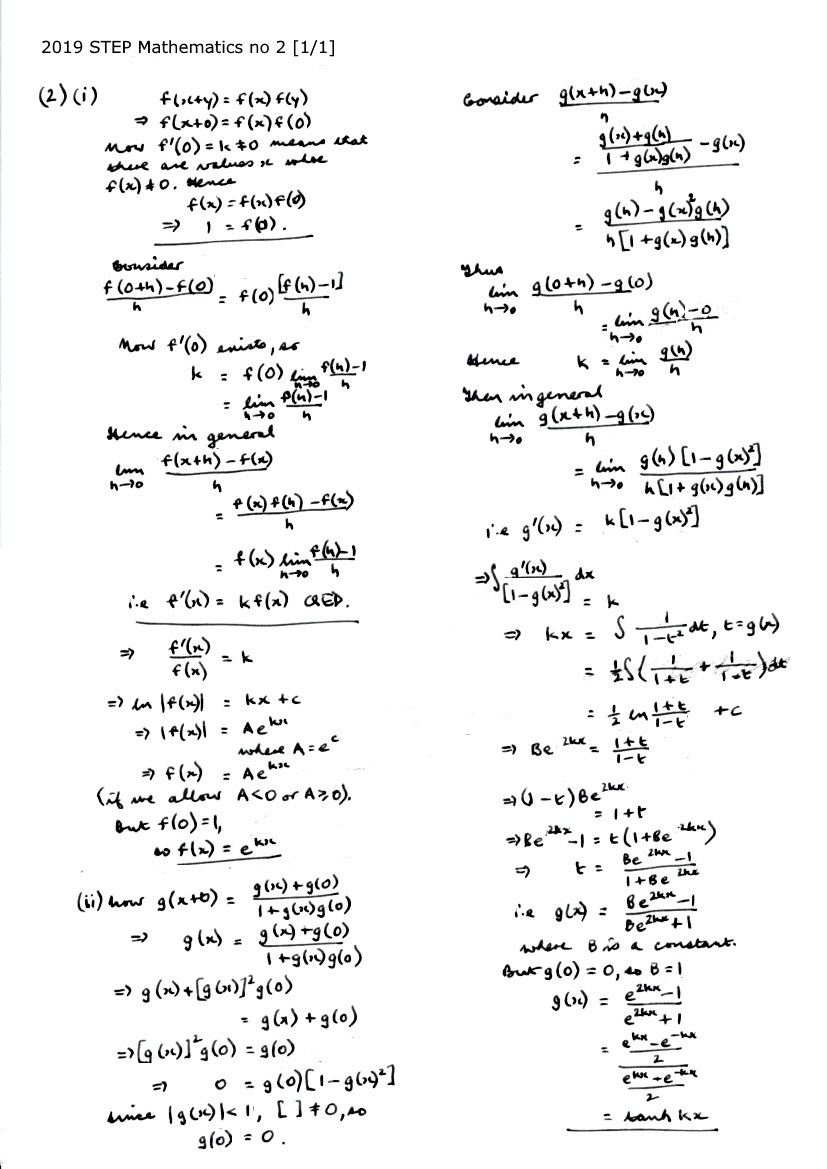 2019 STEP Mathematics no 2 [1/1]
(2) (i) f(x+y) = f(x) f(y)
⇒ f(x+0) = f(x) f(0)
Now f'(0) = k ≠ 0 means that
there are values x where
f(x) ≠ 0. Hence
f(x) = f(x) f(0)
⇒ 1 = f(0).
Consider
(f(0+h) – f(0))/h = f(0) [f(h) – 1]/h
Now f'(0) exists, so
k = f(0) lim h→0 (f(h) – 1)/h
= lim h→0 (f(h) – 1)/h
Hence in general
lim h→0 (f(x+h) – f(x))/h
= (f(x) f(h) – f(x))/h
= f(x) lim h→0 (f(h) – 1)/h
i.e f'(x) = k f(x) QED.
⇒ f'(x)/f(x) = k
⇒ ln |f(x)| = kx + c
⇒ |f(x)| = Ae^{kx}
where A = e^c
⇒ f(x) = Ae^{kx}
(if we allow A<0 or A⩾0).
But f(0) = 1,
so f(x) = e^{kx}
(ii) Now g(x+0) = (g(x) + g(0))/(1 + g(x)g(0))
⇒ g(x) = (g(x) + g(0))/(1 + g(x)g(0))
⇒ g(x) + [g(x)]² g(0)
= g(x) + g(0)
⇒ [g(x)]² g(0) = g(0)
⇒ 0 = g(0) [1 – g(x)²]
since |g(x)| < 1, [ ] ≠ 0, so
g(0) = 0.
Consider (g(x+h) – g(x))/h
= ((g(x) + g(h))/(1 + g(x)g(h)) – g(x))/h
= (g(h) – g(x)² g(h))/(h[1 + g(x) g(h)])
Thus
lim h→0 (g(0+h) – g(0))/h
= lim h→0 (g(h) – 0)/h
Hence k = lim h→0 g(h)/h
Then in general
lim h→0 (g(x+h) – g(x))/h
= lim h→0 (g(h) [1 – g(x)²])/(h[1 + g(x) g(h)])
i.e g'(x) = k[1 – g(x)²]
⇒ ∫ g'(x)/[1 – g(x)²] dx = k
⇒ kx = ∫ 1/(1 – t²) dt, t = g(x)
= ½ ∫ (1/(1+t) + 1/(1–t)) dt
= ½ ln (1+t)/(1–t) + c
⇒ Be^{2kx} = (1+t)/(1–t)
⇒ (1 – t) Be^{2kx}
= 1 + t
⇒ Be^{2kx} – 1 = t(1 + Be^{2kx})
⇒ t = (Be^{2kx} – 1)/(1 + Be^{2kx})
i.e g(x) = (Be^{2kx} – 1)/(Be^{2kx} + 1)
where B is a constant.
But g(0) = 0, so B = 1
g(x) = (e^{2kx} – 1)/(e^{2kx} + 1)
= ((e^{kx} – e^{-kx})/2)/((e^{kx} + e^{-kx})/2)
= tanh kx